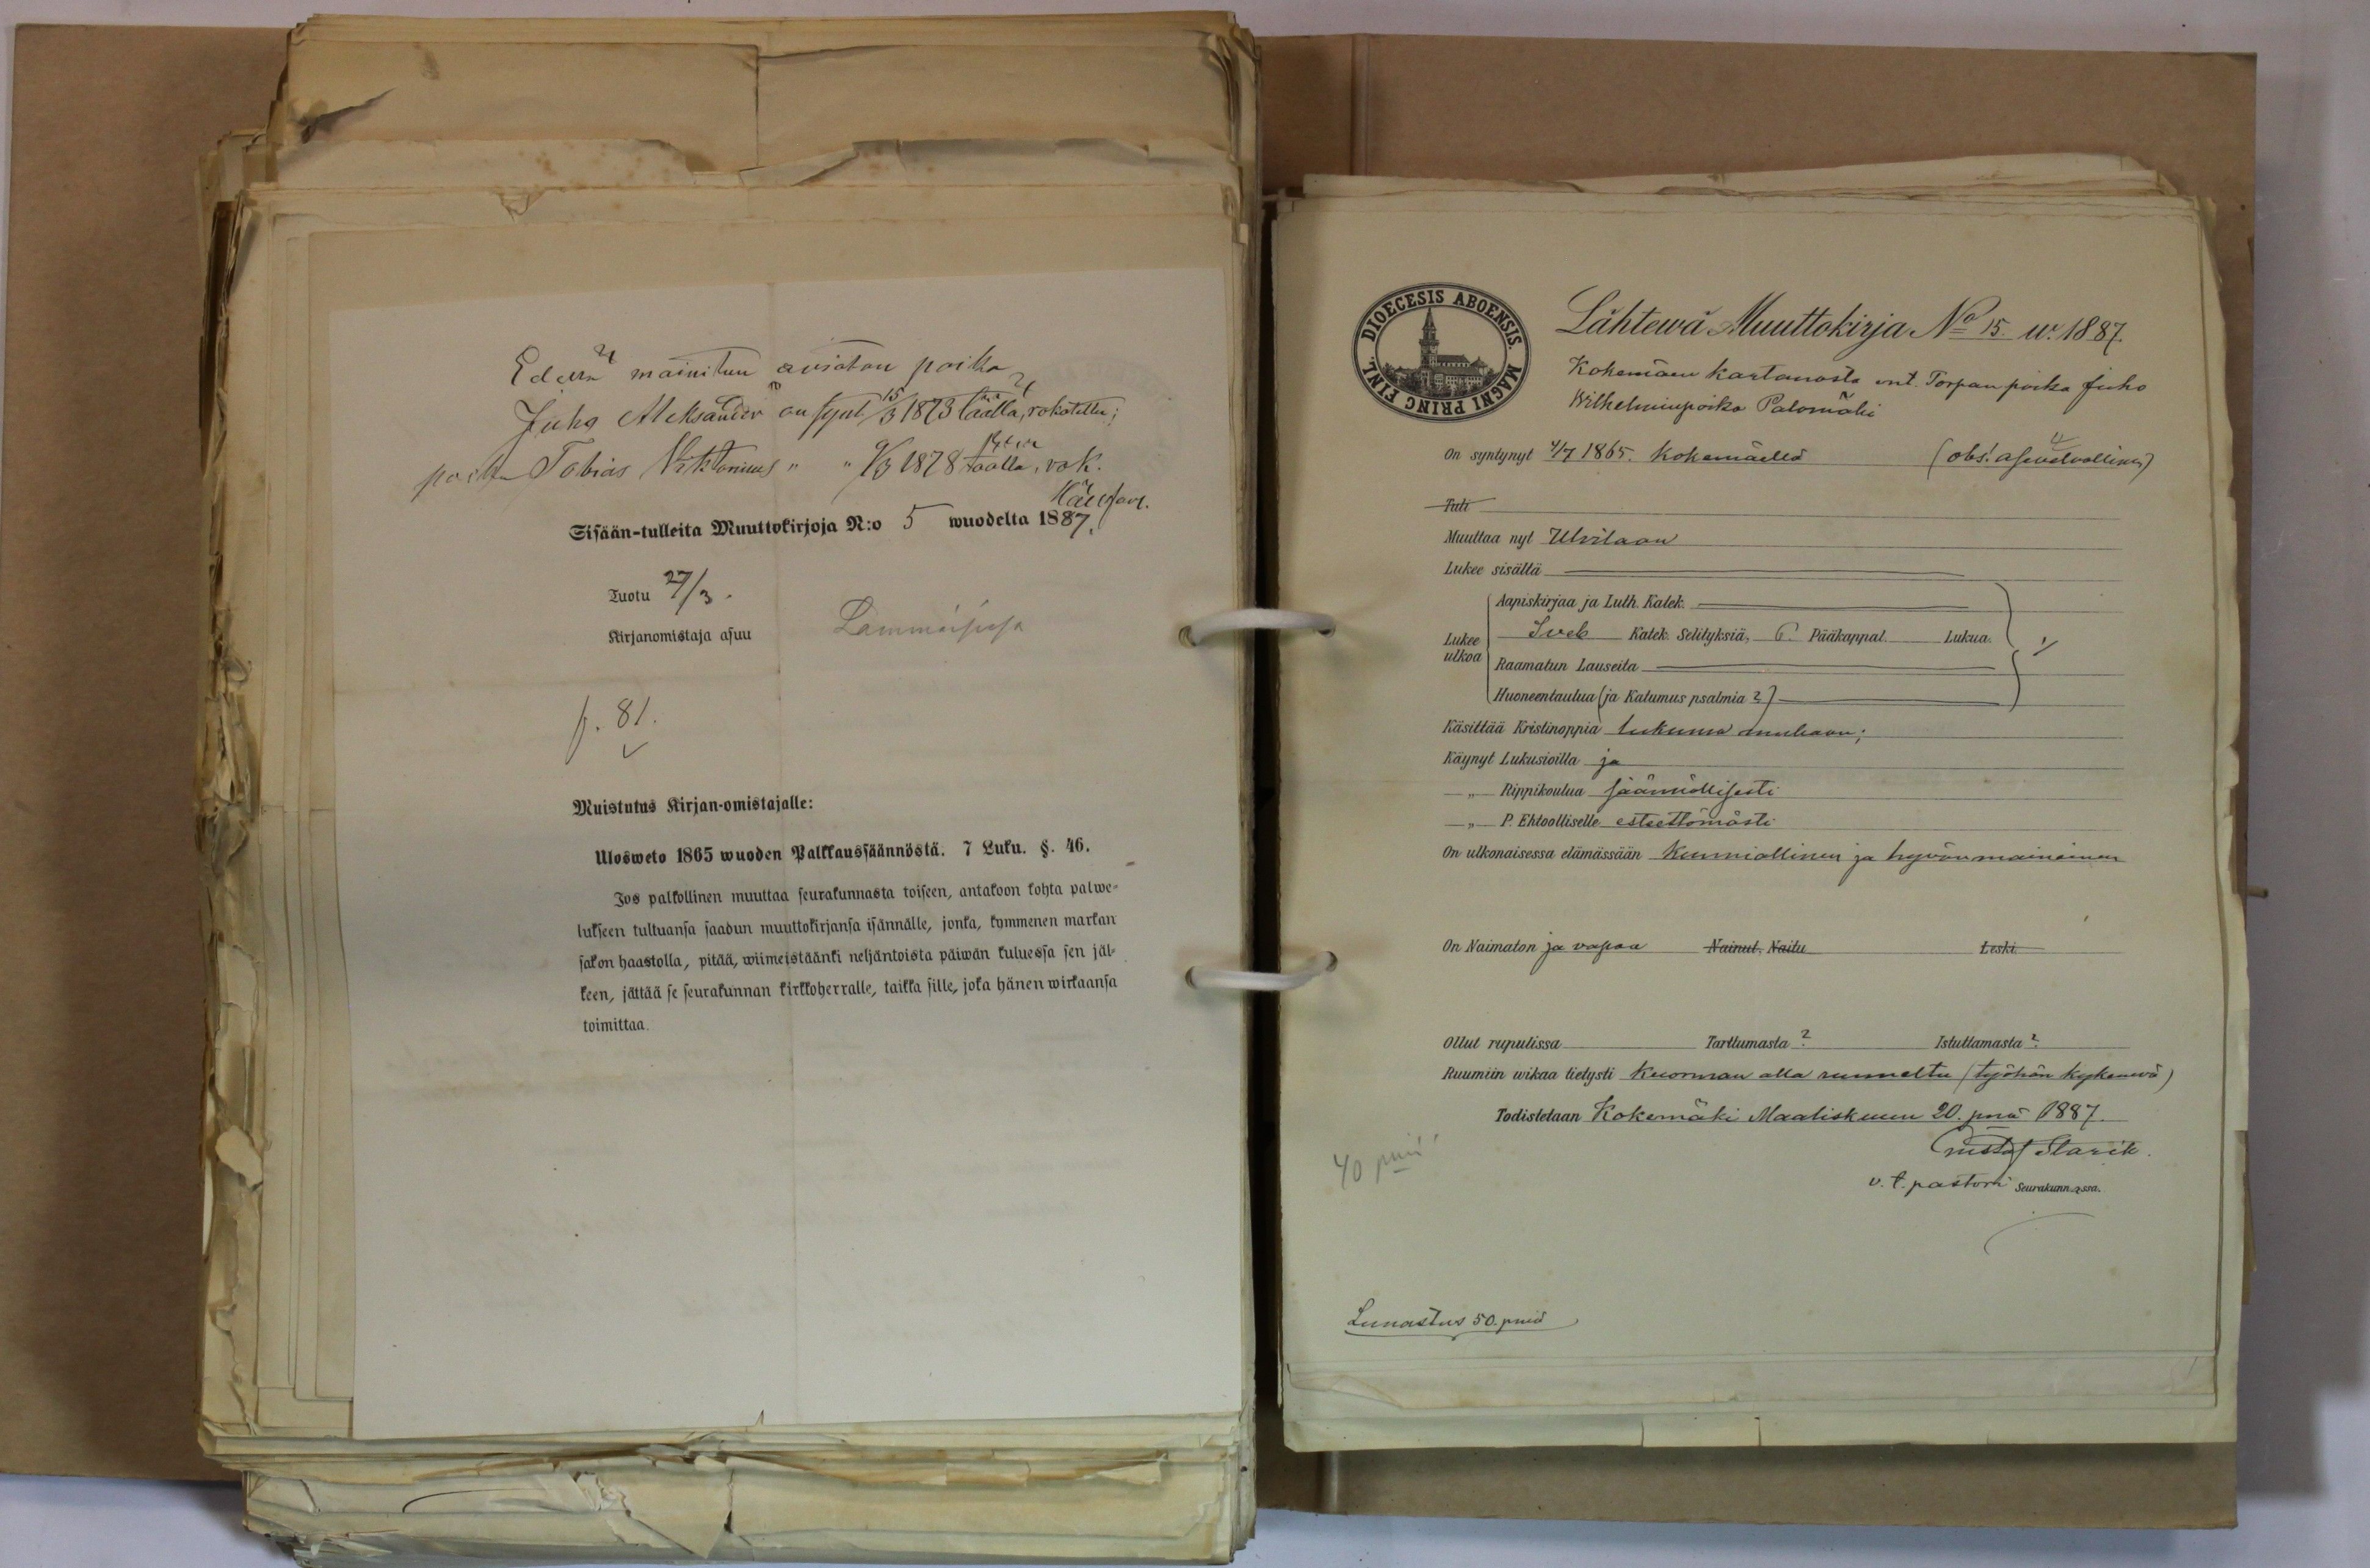 Edellä mainitun avioton poika
Juho Aleksander on synt. 15/3 1873 täällä, rokotettu;
poika Tobias Viktorinus " " /3 1878 täällä, rok.
Sisään-tulleita Muuttokirjoja N:o 5 wuodelta 1887.
Tuotu 27/3.
Kirjanomistaja asuu
p. 81.
Muistutus Kirjan-omistajalle:
Ulosweto 1865 wuoden Palkkaussäännöstä. 7 Luku. §. 46.
Jos palkollinen muuttaa seurakunnasta toiseen, antakoon kohta palwe-
lukseen tultuansa saadun muuttokirjansa isännälle, jonka, kymmenen markan
sakon haastolla, pitää, wiimeistäänki neljäntoista päiwän kuluessa sen jäl-
keen, jättää se seurakunnan kirkkoherralle, taikka sille, joka hänen wirkaansa
toimittaa.
DIOECESIS ABOENSIS. MAGNI PRINC FINL.
Lähtewä Muuttokirja No 15. w. 1887.
Kokemäen kartanosta ent. Torpan poika Juho
Wilhelminpoika Palomäki
On syntynyt 4/7 1865. Kokemäellä (obs! asevelvollinen)
Tuli
Muuttaa nyt Ulvilaan
Lukee sisältä
Aapiskirjaa ja Luth. Katek.
Lukee ulkoa
Sveb Katek. Selityksiä, 6. Pääkappal. Lukua.
Raamatun Lauseita
Huoneentaulua (ja Katumus psalmia ?)
Käsittää Kristinoppia lukunsa mukaan;
Käynyt Lukusioilla ja
—„— Rippikoulua säännöllisesti
—„— P. Ehtoolliselle esteettömästi
On ulkonaisessa elämässään Kunniallinen ja hyvänmaineinen
On Naimaton ja vapaa Nainut. Naitu Leski.
Ollut rupulissa Tarttumasta ? Istuttamasta ?
Ruumiin wikaa tietysti Kuorman alla runneltu (työhön kykenevä)
Todistetaan Kokemäki Maaliskuun 20. pnä 1887.
Gustaf
v. t. pastori Seurakunn.assa.
40 pniä
Lunastus 50. pniä